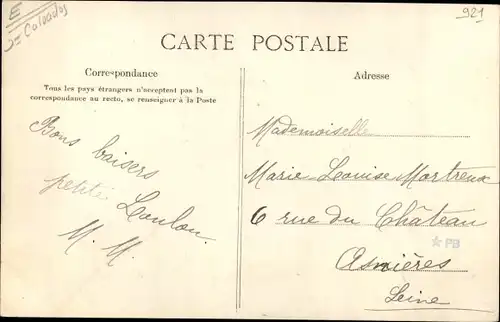 E
= Calvados
921
CARTE POSTALE
Correspondance
Tous les pays étrangers n'acceptent pas la
correspondance au recto, se renseigner à la Poste
Bons baisers
petite Loulou.
M. M.
Adresse
Mademoiselle
Marie Louise Mortreux
6 rue du Château
Asnières
Seine
PB